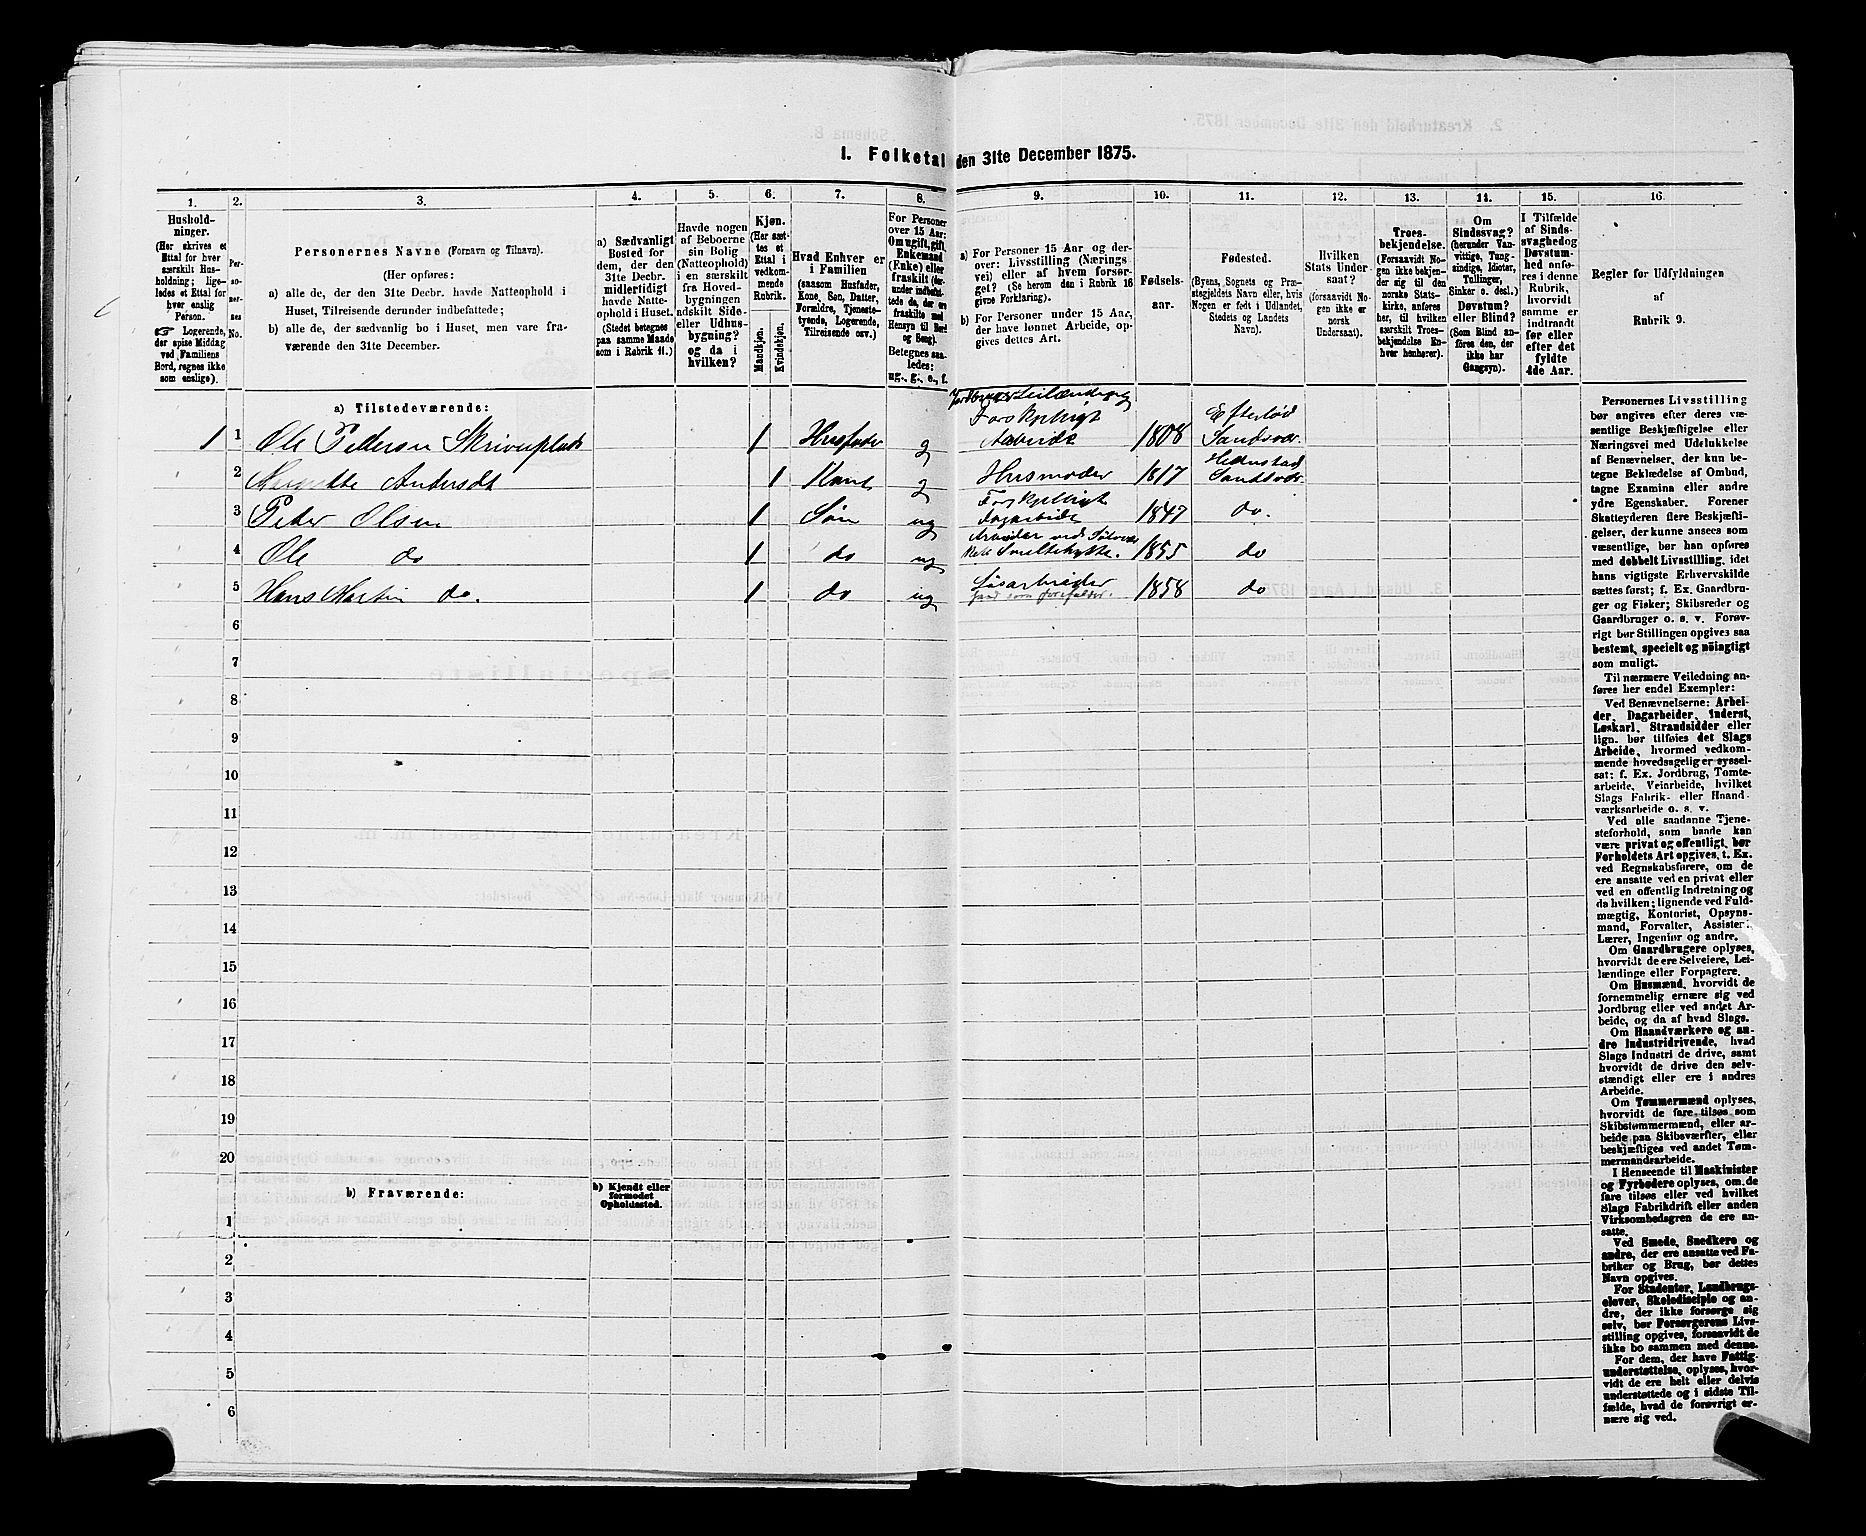 I. Folketal den 31te December 1875.
1.
Hushold-
ninger.
(Her skrives et
Ettal for hver
særskilt Hus-
holdning; lige-
ledes et Ettal for
hver enslig
Person.
☞ Logerende,
der spise Middag
ved Familiens
Bord, regnes ikke
som enslige).
2.
Per-
so-
ner-
nes
No.
3.
Personernes Navne (Fornavn og Tilnavn).
(Her opføres:
a) alle de, der den 31te Decbr. havde Natteophold i
Huset, Tilreisende derunder indbefattede;
b) alle de, der sædvanlig bo i Huset, men vare fra-
værende den 31te December.
4.
a) Sædvanligt
Bosted for
dem, der den
31te Decbr.
midlertidigt
havde Natte-
ophold i Huset.
(Stedet betegnes
paa samme Maade
som i Rubrik 11.)
5.
Havde nogen
af Beboerne
sin Bolig
(Natteophold)
i en særskilt
fra Hoved-
bygningen
adskilt Side-
eller Udhus-
bygning?
og da i
hvilken?
6.
Kjøn.
(Her sæt-
tes et
Ettal i
vedkom-
mende
Rubrik.
Mandkjøn.
Kvindekjøn.
7.
Hvad Enhver er
i Familien
(saasom Husfader,
Kone, Søn, Datter,
Forældre, Tjeneste-
tyende, Logerende,
Tilreisende osv.)
8.
For Personer
over 15 Aar:
Om ugift, gift,
Enkemand
(Enke) eller
fraskilt
Betegnes saa-
ledes:
ug., g., e., f.
9.
a) For Personer 15 Aar og der-
over: Livsstilling (Nærings-
vei) eller af hvem forsør-
get? (Se herom den i Rubrik 16
givne Forklaring).
b) For Personer under 15 Aar,
der have lønnet Arbeide, op-
gives dettes Art.
10.
Fødsels-
aar.
11.
Fødested.
(Byens, Sognets og Præ-
stegjeldets Navn eller, hvis
Nogen er født i Udlandet,
Stedets og Landets
Navn).
12.
Hvilken
Stats Under-
saat?
(forsaavidt No-
gen ikke er
norsk
Undersaat).
13.
Troes-
bekjendelse.
(Forsaavidt No-
gen ikke bekjen-
der sig til den
norske Stats-
kirke, anføres
her, til hvilken
særskilt Troes-
bekjendelse En-
hver henhører).
14.
Om
Sindssvag?
(herunder Van-
vittige, Tung-
sindige, Idioter,
Tullinger,
Sinker o. desl.)
Døvstum?
eller Blind?
(Som Blind an-
føres den, der
ikke har
Gangsyn).
15.
I Tilfælde
af Sinds-
svaghed og
Døvstum-
hed anfø-
res i denne
Rubrik,
hvorvidt
samme er
indtraadt
før eller
efter det
fyldte
4de Aar.
16.
Regler for Udfyldningen
af
Rubrik 9.
a) Tilstedeværende:
1 1 Ole Pedersen Skriverplads 1 Husfader g Jordbruger Leilænding Forskjelligt Arbeide 1808 Efteløv Sandsvær.
2 Andersdt 1 Kone g Husmoder 1817 Hedenstad Sandsvær.
3 Peder Olsen 1 Søn ug Forskjelligt Dagarbeide 1847 do.
4 Ole do 1 do ug Arbeider ved Smeltehytte. 1855 do
5 Hans Martin do. 1 do ug Løsarbeider hvad som forefalder. 1858 do
6
7
8
9
10
11
12
13
14
15
16
17
18
19
20
b) Fraværende:
b) Kjendt eller
formodet
Opholdssted.
1
2
3
4
5
6
Personernes Livsstilling
bør angives efter deres væ-
sentlige Beskjæftigelse eller
Næringsvei med Udelukkelse
af Benævnelser, der kun be-
tegne Beklædelse af Ombud,
tagne Examina eller andre
ydre Egenskaber. Forener
Skatteyderen flere Beskjæfti-
gelser, der kunne ansees som
væsentlige, bør han opføres
med dobbelt Livsstilling, idet
hans vigtigste Erhvervskilde
sættes først; f. Ex. Gaardbru-
ger og Fisker; Skibsreder og
Gaardbruger o. s. v. Forøv-
rigt bør Stillingen opgives saa
bestemt, specielt og nøiagtigt
som muligt.
Til nærmere Veiledning an-
føres her endel Exempler:
Ved Benævnelserne: Arbei-
der, Dagarbeider, Inderst,
Løskarl, Strandsidder eller
lign. bør tilføies det Slags
Arbeide, hvormed vedkom-
mende hovedsagelig er syssel-
sat: f. Ex. Jordbrug, Tomte-
arbeide, Veiarbeide, hvilket
Slags Fabrik- eller Haand-
værksarbeide o. s. v.
Ved alle saadanne Tjene-
steforhold, som baade kan
være privat og offentligt, bør
Forholdets Art opgives, t. Ex.
ved Regnskabsførere, om de
ere ansatte ved en privat eller
ved en offentlig Indretning og
da hvilken; lignende ved Fuld-
mægtig, Kontorist, Opsyns-
mand, Forvalter, Assistent,
Lærer, Ingeniør og andre.
Om Gaardbrugere oplyses,
hvorvidt de ere Selveiere, Lei-
lændinge eller Forpagtere.
Om Husmænd, hvorvidt de
fornemmelig ernære sig ved
Jordbrug eller ved andet Ar-
beide, og da af hvad Slags.
Om Haandværkere og an-
dre Industridrivende, hvad
Slags Industri de drive, samt
hvorvidt de drive den selv-
stændigt eller ere i andres
Arbeide.
Om Tømmermænd oplyses,
hvorvidt de fare tilsøs som
Skibstømmermænd, eller ar-
beide paa Skibsværfter, eller
beskjæftiges ved andet Tøm-
mermandsarbeide.
I Henseende til Maskinister
og Fyrbødere oplyses, om de
fare tilsøs eller ved hvilket
Slags Fabrikdrift eller anden
Virksomhedsgren de ere an-
satte.
Ved Smede, Snedkere og
andre, der ere ansatte ved Fa-
briker og Brug, bør dettes
Navn opgives.
For Studenter, Landbrugs-
elever, Skoledisciple og an-
dre, der ikke forsørge sig
selv, bør Forsørgerens Livs-
stilling opgives, forsaavidt de
ikke bo sammen med denne.
For dem, der have Fattig-
understøttelse, oplyses, hvor-
vidt de ere helt eller delvis
understøttede og i sidste Til-
fælde, hvad de forøvrigt er-
nære sig ved.